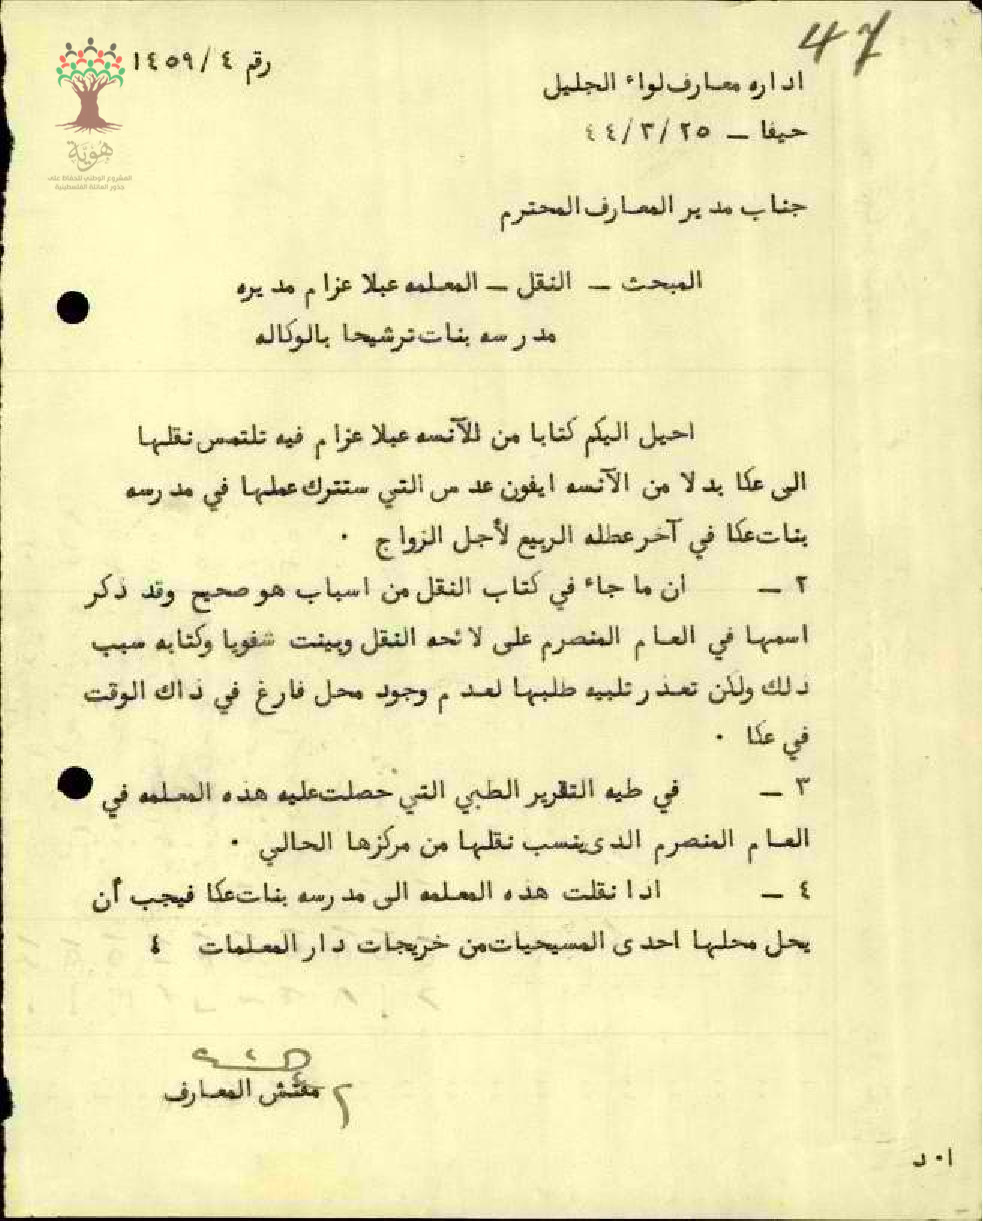 47
رقم ١٤٥٩/٤
اداره معارف لواء الجليل
حيفا – ٤٤/٣/٢٥
هُوِيَّة
المشروع الوطني للحفاظ على
جذور العائلة الفلسطينية
جناب مدير المعارف المحترم
المبحث – النقل – المعلمه عبلا عزام مديره
مدرسه بنات ترشيحا بالوكاله
احيل اليكم كتابا من للآنسه عبلا عزام فيه تلتمس نقلها
الى عكا بدلا من الآنسه ايفون عدس التي ستترك عملها في مدرسه
بنات عكا في آخر عطله الربيع لأجل الزواج ٠
٢ – ان ما جاء في كتاب النقل من اسباب هو صحيح وقد ذكر
اسمها في العام المنصرم على لائحه النقل وبينت شفويا وكتابه سبب
ذلك ولكن تعذر تلبيه طلبها لعدم وجود محل فارغ في ذاك الوقت
في عكا ٠
٣ – في طيه التقرير الطبي التي حصلت عليه هذه المعلمه في
العام المنصرم الذى ينسب نقلها من مركزها الحالي ٠
٤ – اذا نقلت هذه المعلمه الى مدرسه بنات عكا فيجب أن
يحل محلها احدى المسيحيات من خريجات دار المعلمات ٤
مفتش المعارف
ا٠د